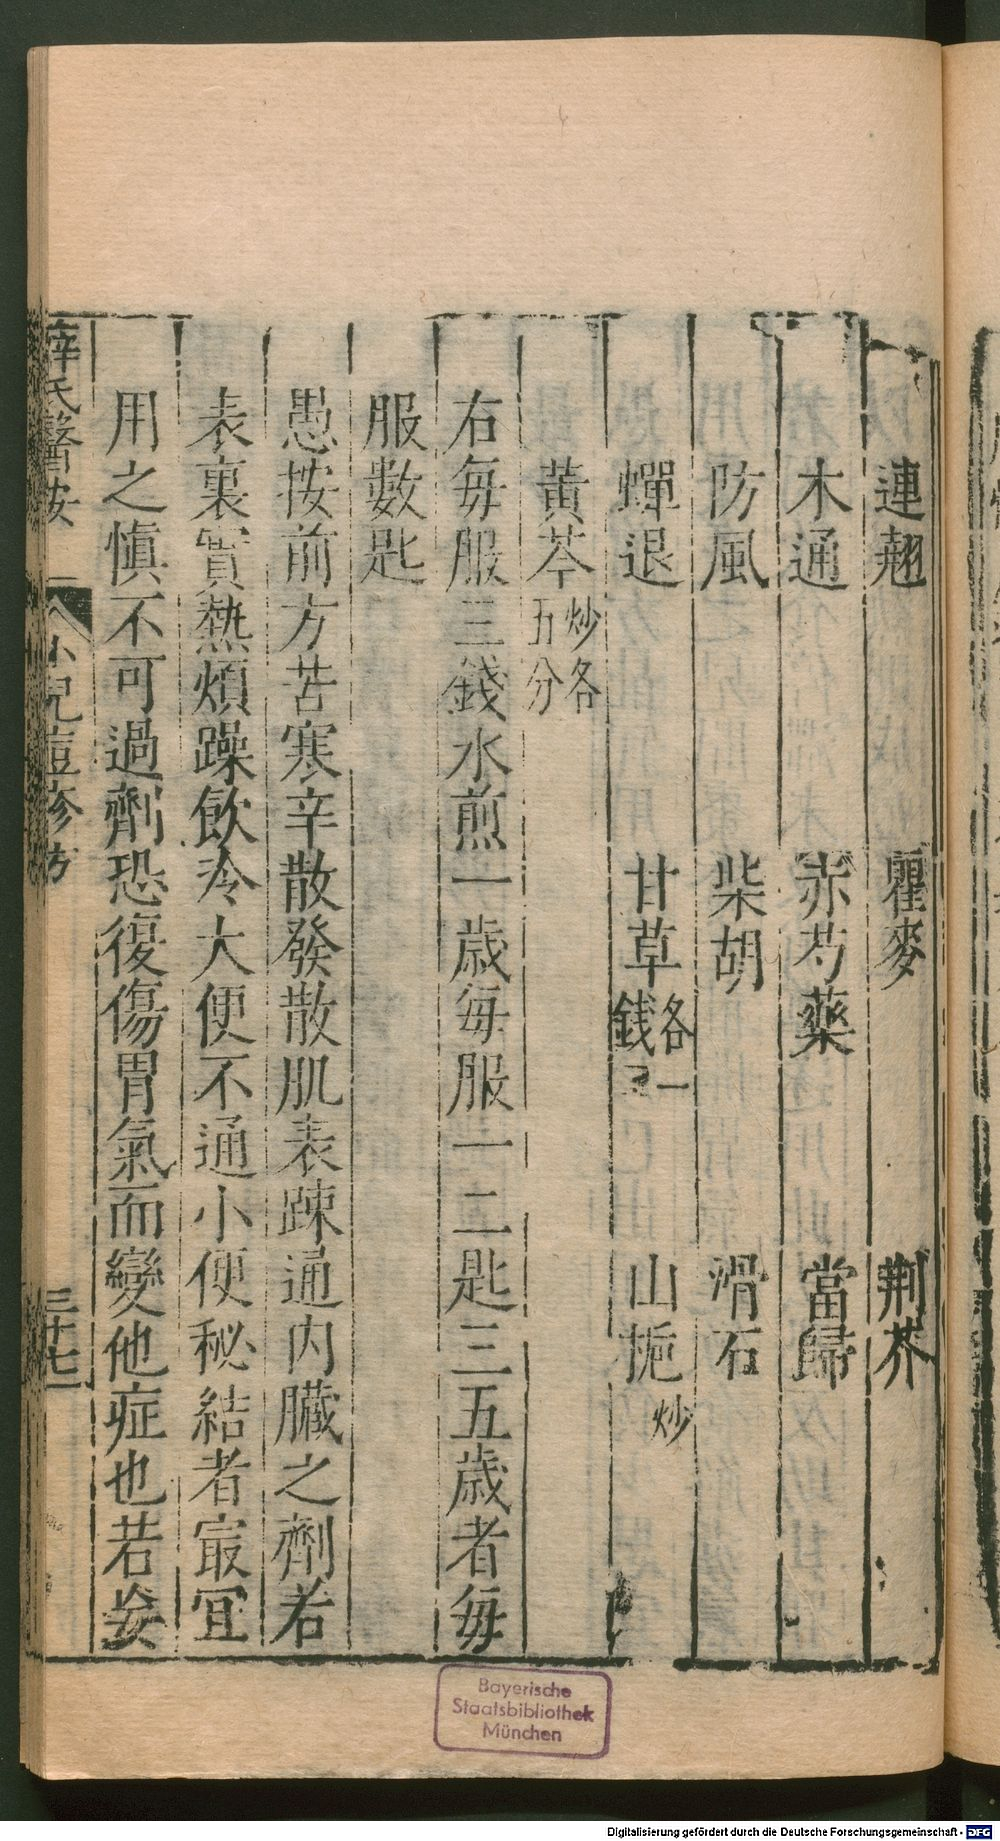 連翹　瞿麥　荆芥
木通　赤芍藥　當歸
防風　柴胡　滑石
蟬退　甘草各一錢　山梔炒
黄芩炒各五分
右每服三錢水煎一歲每服一二匙三五歲者每
服數匙
愚按前方苦寒辛散發散肌表踈通内臟之劑若
表裏實熱煩躁飲冷大便不通小便秘結者㝡宜
用之慎不可過劑恐復傷胃氣而變他症也若妄
薛氏醫按　小兒痘疹方　三十七
Bayerische
Staatsbibliothek
München
Digitalisierung gefördert durch die Deutsche Forschungsgemeinschaft - DFG